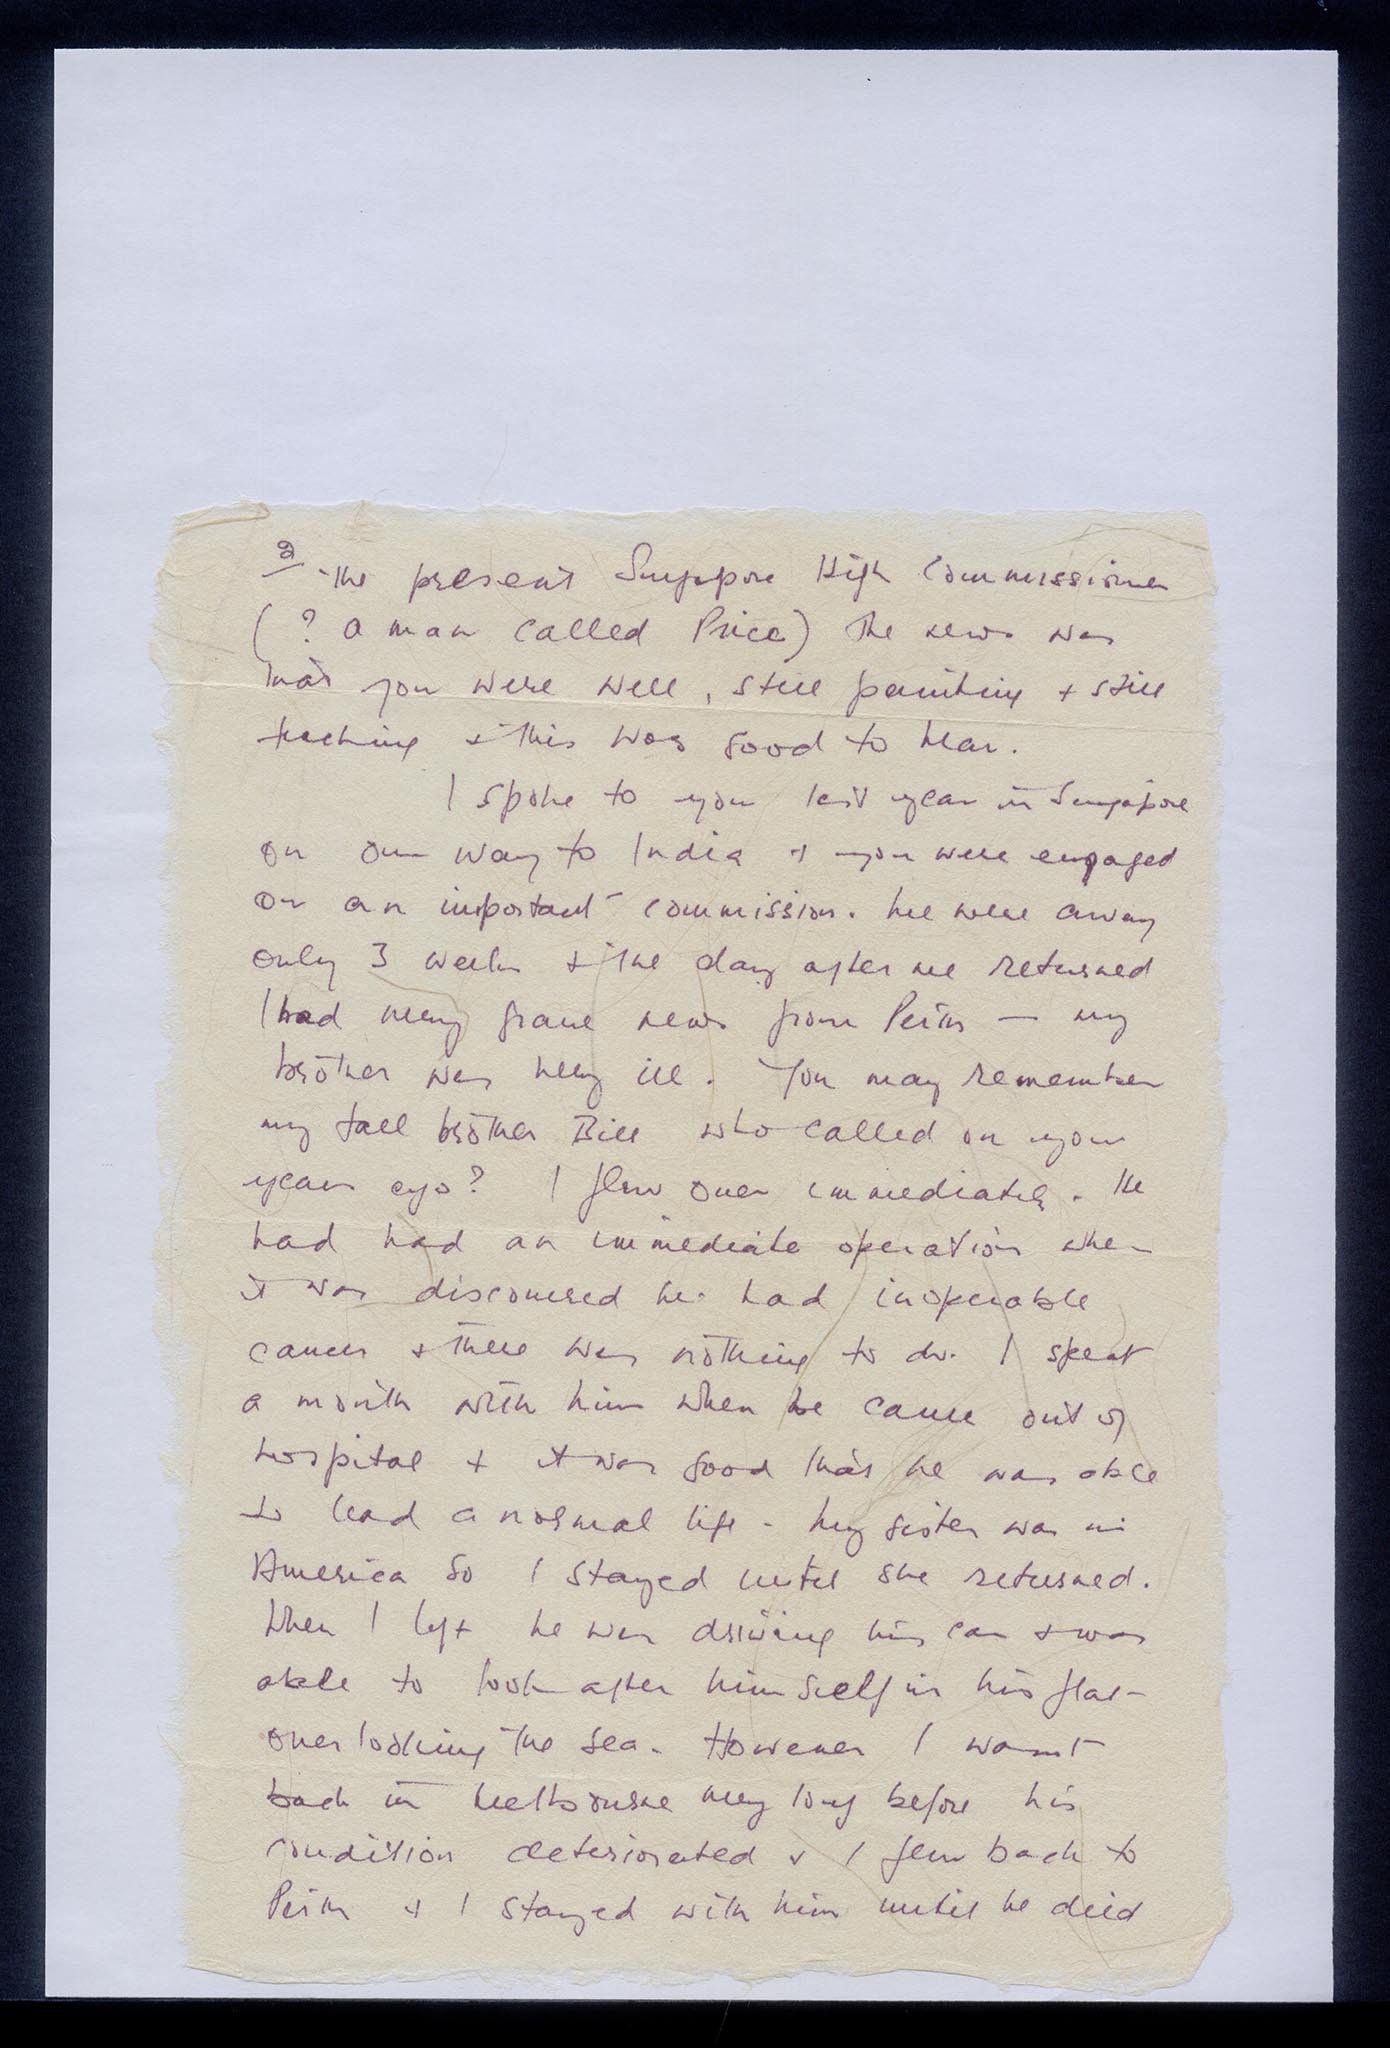 2
the present Singapore High Commissioner
(? a man called Price) The news was
that you were well, still painting + still
teaching + this was good to hear.
I spoke to you last year in Singapore
on our way to India + you were engaged
on an important commission. We were away
only 3 weeks + the day after we returned
I had very grave news from Perth — my
brother was very ill. You may remember
my tall brother Bill who called on you
years ago? I flew over immediately. He
had had an immediate operation when
it was discovered he had inoperable
cancer + there was nothing to do. I spent
a month with him when he came out of
hospital + it was good that he was able
to lead a normal life - My sister was in
America so I stayed until she returned.
When I left he was driving his car + was
able to look after himself in his flat
overlooking the sea. However I wasnt
back in Melbourne very long before his
condition deteriorated + I flew back to
Perth + I stayed with him until he died